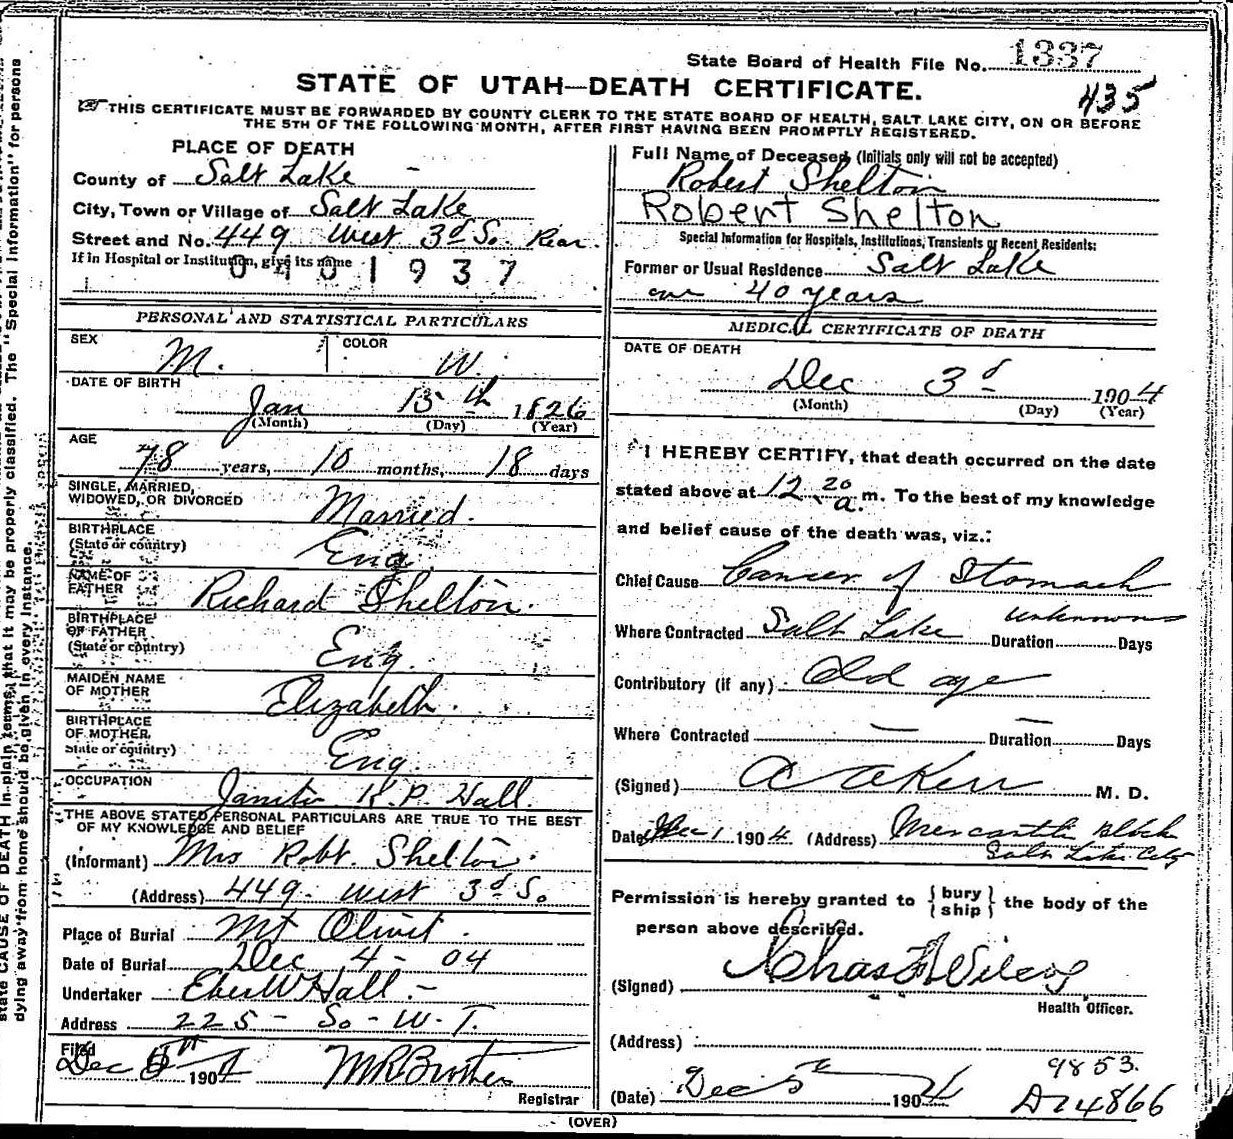 State Board of Health File No. 1337
STATE OF UTAH—DEATH CERTIFICATE.
435
THIS CERTIFICATE MUST BE FORWARDED BY COUNTY CLERK TO THE STATE BOARD OF HEALTH, SALT LAKE CITY, ON OR BEFORE
THE 5TH OF THE FOLLOWING MONTH, AFTER FIRST HAVING BEEN PROMPTLY REGISTERED.
PLACE OF DEATH
County of Salt Lake
City, Town or Village of Salt Lake
Street and No. 449 West 3d So. Rear.
If in Hospital or Institution, give its name
0401937
PERSONAL AND STATISTICAL PARTICULARS
SEX M. COLOR W.
DATE OF BIRTH
Jan 15th 1826
(Month) (Day) (Year)
AGE
78 years, 10 months, 18 days
SINGLE, MARRIED,
WIDOWED, OR DIVORCED Married.
BIRTHPLACE
(State or country) Eng.
NAME OF
FATHER Richard Shelton.
BIRTHPLACE
OF FATHER
(State or country) Eng.
MAIDEN NAME
OF MOTHER Elizabeth.
BIRTHPLACE
OF MOTHER
State or country) Eng.
OCCUPATION Janitor K.P. Hall.
THE ABOVE STATED PERSONAL PARTICULARS ARE TRUE TO THE BEST
OF MY KNOWLEDGE AND BELIEF
(Informant) Mrs Robt. Shelton.
(Address) 449- West 3d So
Place of Burial Mt Olivit.
Date of Burial Dec 4 - 04
Undertaker Eber W Hall.-
Address 225 - So - W. T.
Filed
Dec 5th 1904
Registrar
Full Name of Deceased (Initials only will not be accepted)
Robert Shelton
Robert Shelton
Special Information for Hospitals, Institutions, Transients or Recent Residents:
Former or Usual Residence Salt Lake
over 40 years
MEDICAL CERTIFICATE OF DEATH
DATE OF DEATH
Dec 3d 1904
(Month) (Day) (Year)
I HEREBY CERTIFY, that death occurred on the date
stated above at 12 20 a. m. To the best of my knowledge
and belief cause of the death was, viz.:
Chief Cause Cancer of Stomach
Where Contracted Salt Lake Duration unknown Days
Contributory (if any) Old age
Where Contracted — Duration — Days
(Signed) A A Kerr M. D.
Date Dec 1 1904 (Address) Mercantile Block
Salt Lake City
Permission is hereby granted to {bury
{ship} the body of the
person above described.
(Signed) Chas F Wilcox
Health Officer.
(Address)
9853.
(Date) Dec 5th 1904
D24866
(OVER)
state CAUSE OF DEATH in plain terms, that it may be properly classified. The "Special Information" for persons
dying away from home should be given in every instance.